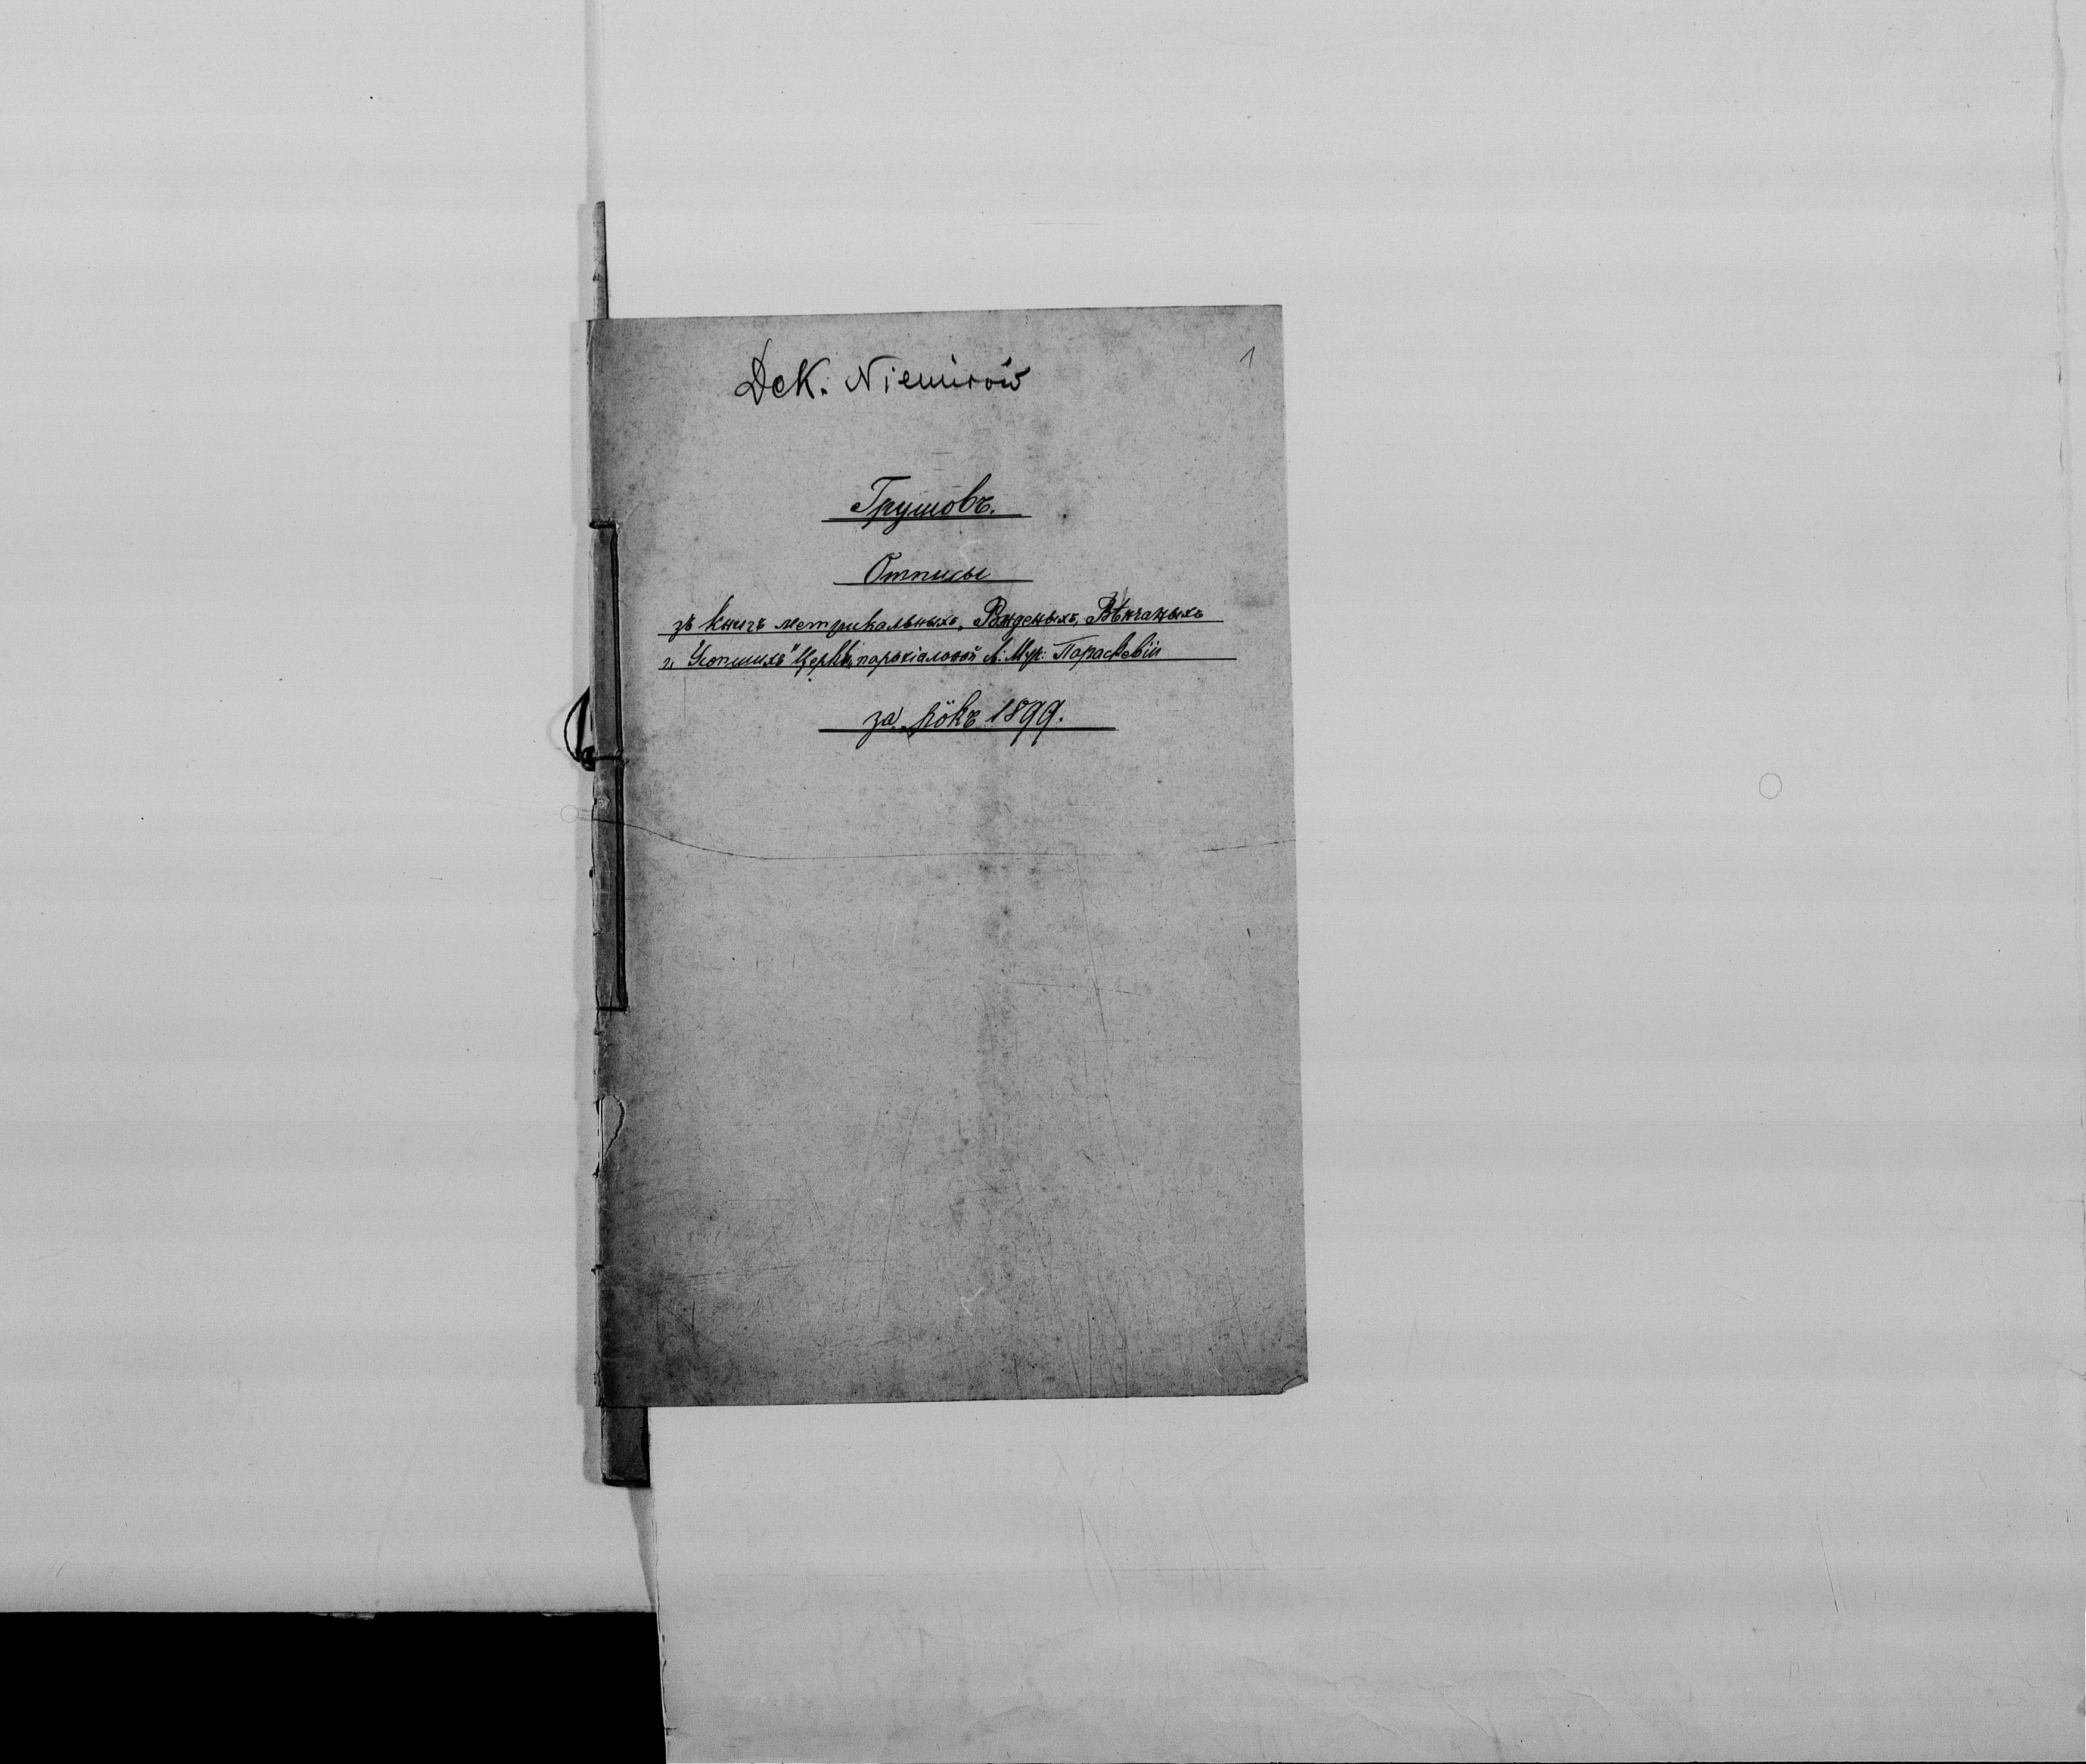 Dek. Niemirów
1
Грушôвъ.
Отписы
зъ книгъ метрикальныхъ, Рожденыхъ, Вѣнчаныхъ
и Усопшихъ" Церкви парохіалоной Мур: Параскевіи
за рôкъ 1899.